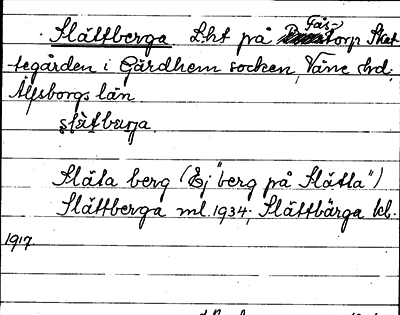 Slättberga Lht på Gåstorp Skat
tegården i Gärdhem socken, Väne hd,
Älfsborgs län
slä̀tbærja.
Släta berg (Ej "berg på Slätta")
Slättberga ml. 1934; Slättbärga kl.
1917.